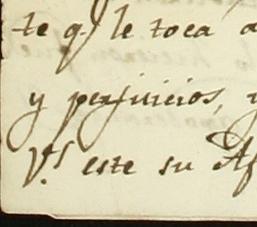 te q.e le toca a
y perjuicios, y
V.s este su Af